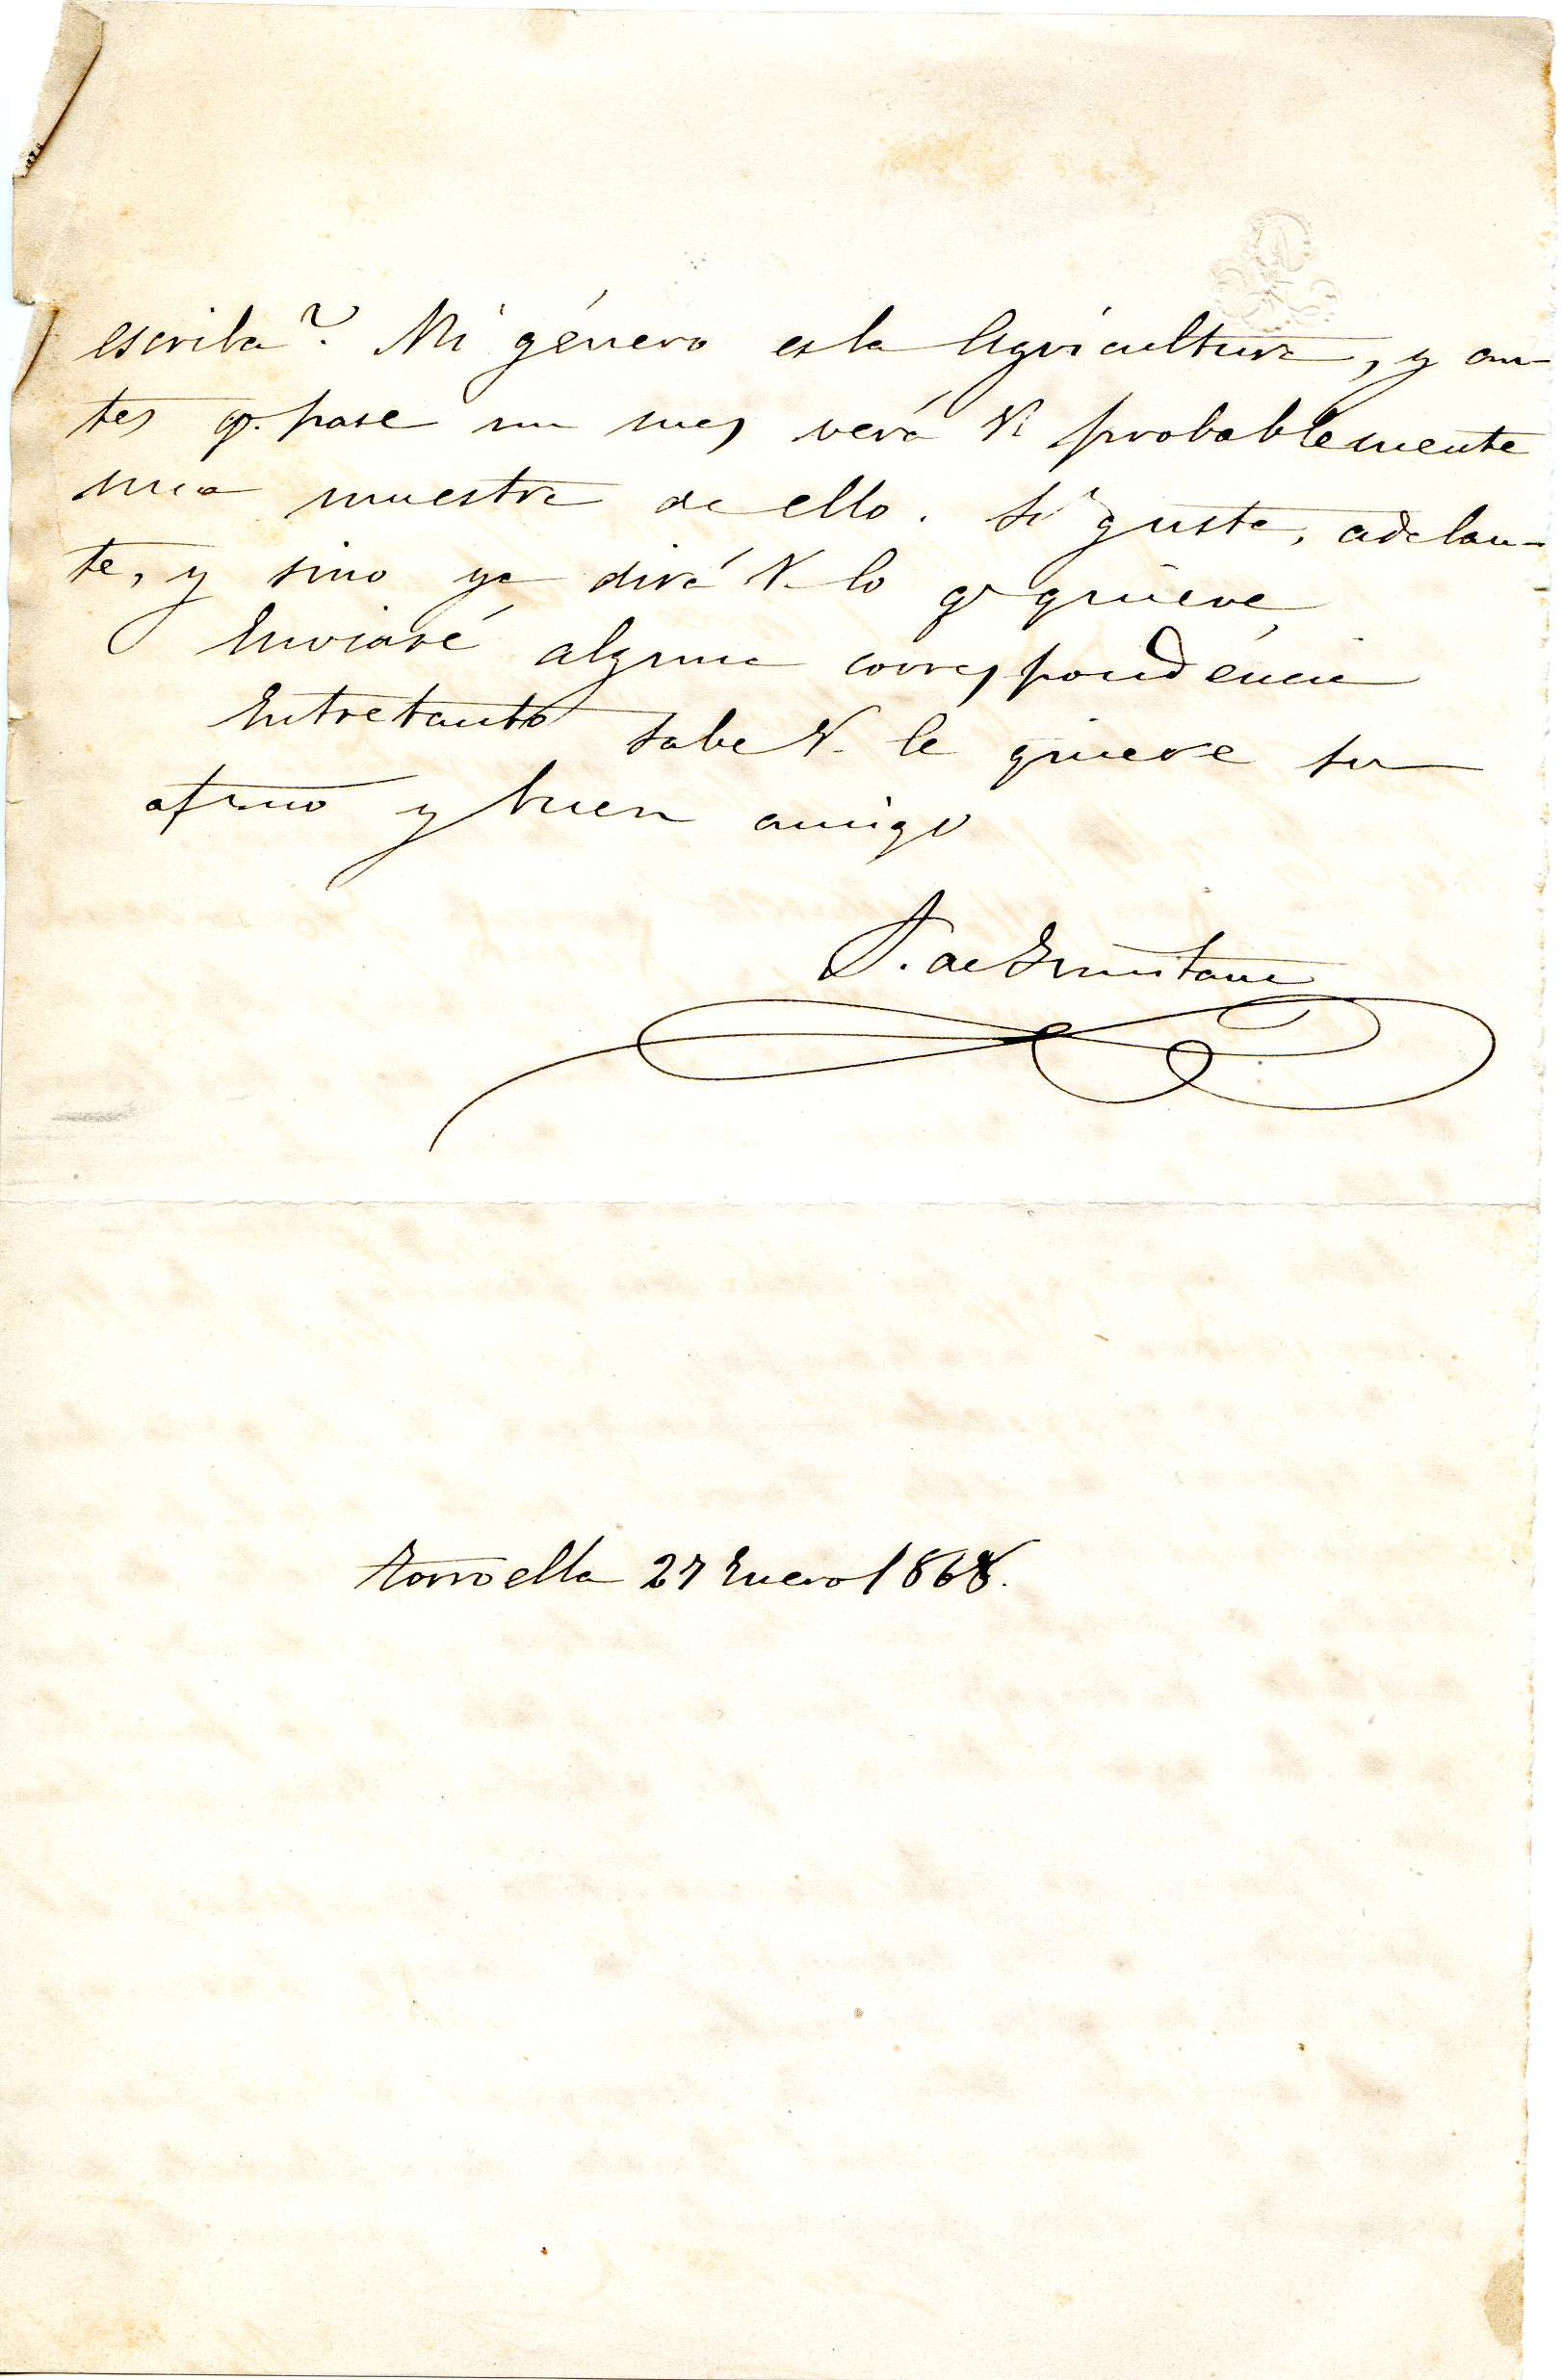 escriba? Mi género es la Agricultura, y an-
tes q. pase un mes verá V. probablemente
una muestra de ello. Si gusta, adelan-
te, y sino ya dirá V. lo q. quiere.
Enviaré alguna correspondéncia
Entretanto sabe V. le quiere su
afmo y buen amigo
P. de
Torroella 27 Enero 1868.